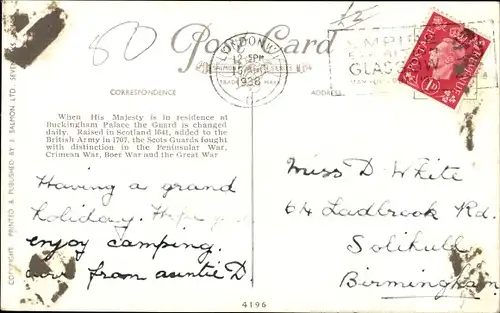 £2
80
Post Card
LONDON.W.1
12 15 PM
1938
TRADE MARK
EMPIRE
GLASGOW
POSTAGE REVENUE
1D
CORRESPONDENCE
ADDRESS
When His Majesty is in residence at
Buckingham Palace the Guard is changed
daily. Raised in Scotland 1641, added to the
British Army in 1707, the Scots Guards fought
with distinction in the Peninsular War,
Crimean War, Boer War and the Great War
Having a grand
holiday. Hope
enjoy camping.
from auntie D.
Miss D White
64 Ladbrook Rd.
Solihull
Birmingham
4196
COPYRIGHT PRINTED & PUBLISHED BY J. SALMON LTD.